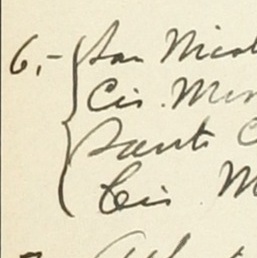 6,- San Nicol
Cis. Mon
Santi C
Cis M